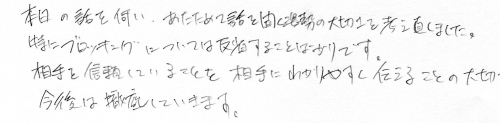 本日の話を伺い、あらためて話を聞く姿勢の大切さを考え直しました。
特にブロッキングについては反省することばかりです。
相手を信頼していることを相手にわかりやすく伝えることの大切
今後は徹底していきます。